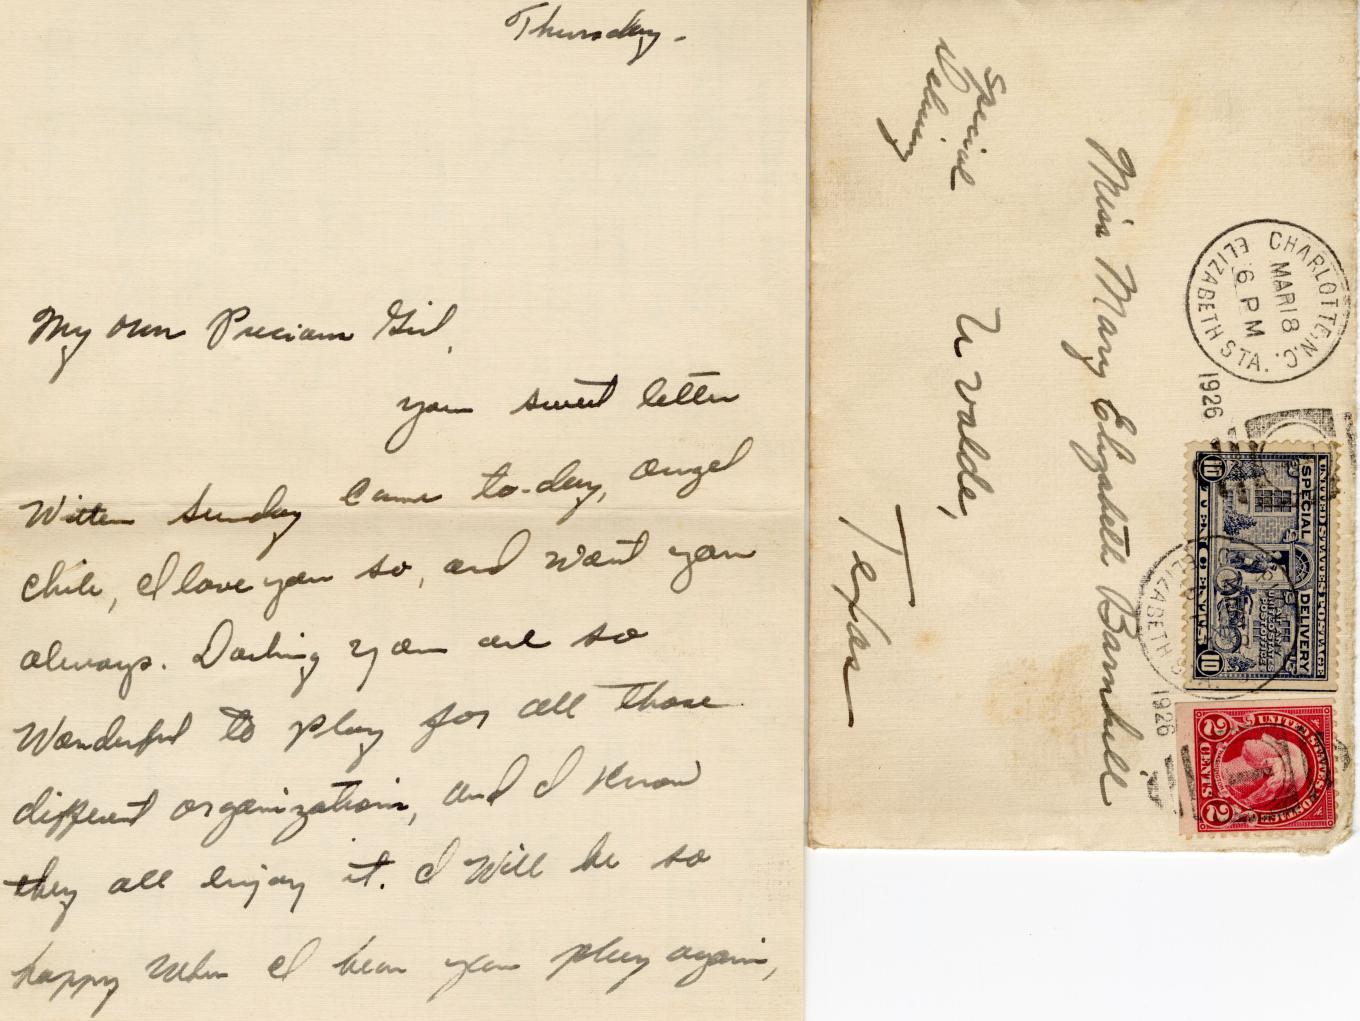 Thursday.
My own Precious Girl,
your sweet letter
Witten Sunday came to-day, angel
chile, I love you so, and want you
always. Darling you are so
Wonderful to play for all those
different organizations, and I know
they all enjoy it. I will be so
happy when I hear you play again,
Special
Delivery
Miss Mary Elizabeth Barnhill
Uvalde,
Texas
CHARLOTTE, N.C.
MAR 18
6 PM
1926
ELIZABETH STA.
UNITED STATES POSTAGE
SPECIAL DELIVERY
10 TEN CENTS 10
ELIZABETH STA.
1926
UNITED STATES POSTAGE
2 CENTS 2